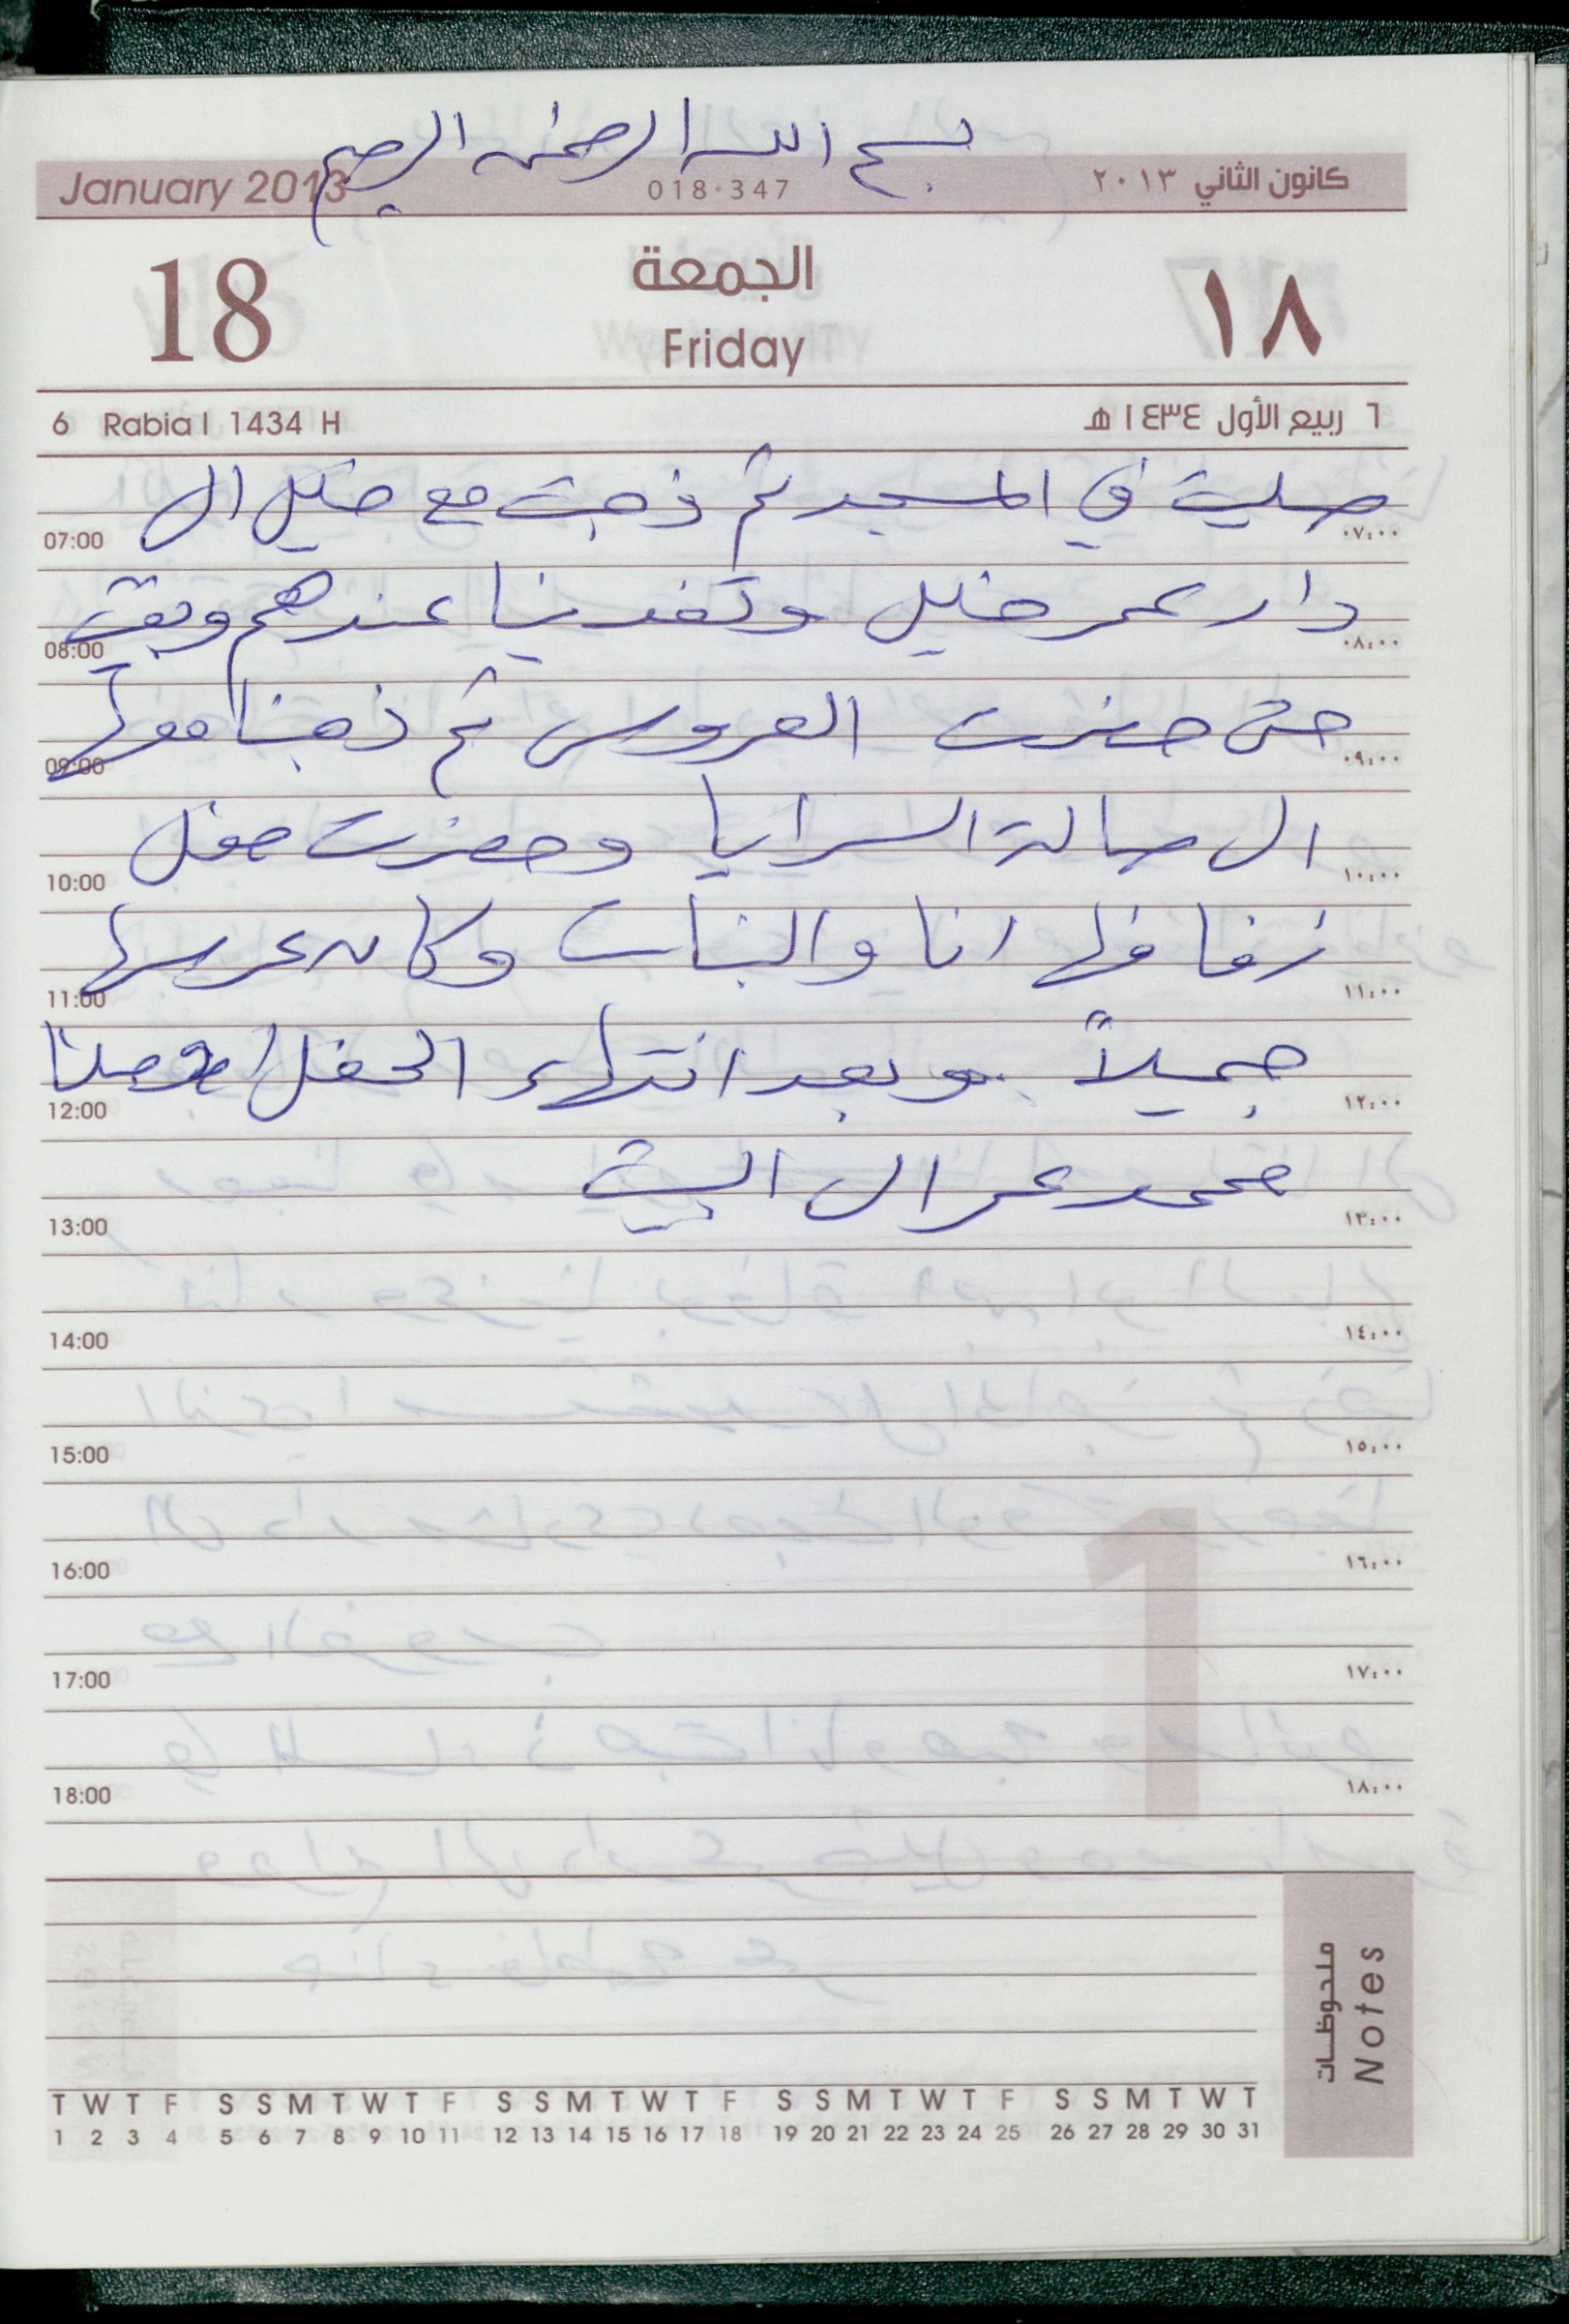 بسم الله الرحمن الرحيم
January 2013 018-347 كانون الثاني ٢٠١٣
18 الجمعة ١٨
Friday
6 Rabia I 1434 H ٦ ربيع الأول ١٤٣٤ هـ
صليت في المسجد ثم ذهبت مع خليل الى
07:00 ٠٧:٠٠
دار عمر خليل وتغدينا عندهم وبقيت
08:00 ٠٨:٠٠
حتى حضرت العروس ثم ذهبنا معها
09:00 ٠٩:٠٠
الى صالة السرايا وحضرت حفل
10:00 ١٠:٠٠
زفافها انا والبنات وكان عرسها
11:00 ١١:٠٠
جميلاً وبعد انتهاء الحفل اوصلنا
12:00 ١٢:٠٠
محمد عمر الى البيت
13:00 ١٣:٠٠
14:00 ١٤:٠٠
15:00 ١٥:٠٠
16:00 ١٦:٠٠
1
17:00 ١٧:٠٠
18:00 ١٨:٠٠
ملحوظات
Notes
T W T F S S M T W T F S S M T W T F S S M T W T F S S M T W T
1 2 3 4 5 6 7 8 9 10 11 12 13 14 15 16 17 18 19 20 21 22 23 24 25 26 27 28 29 30 31